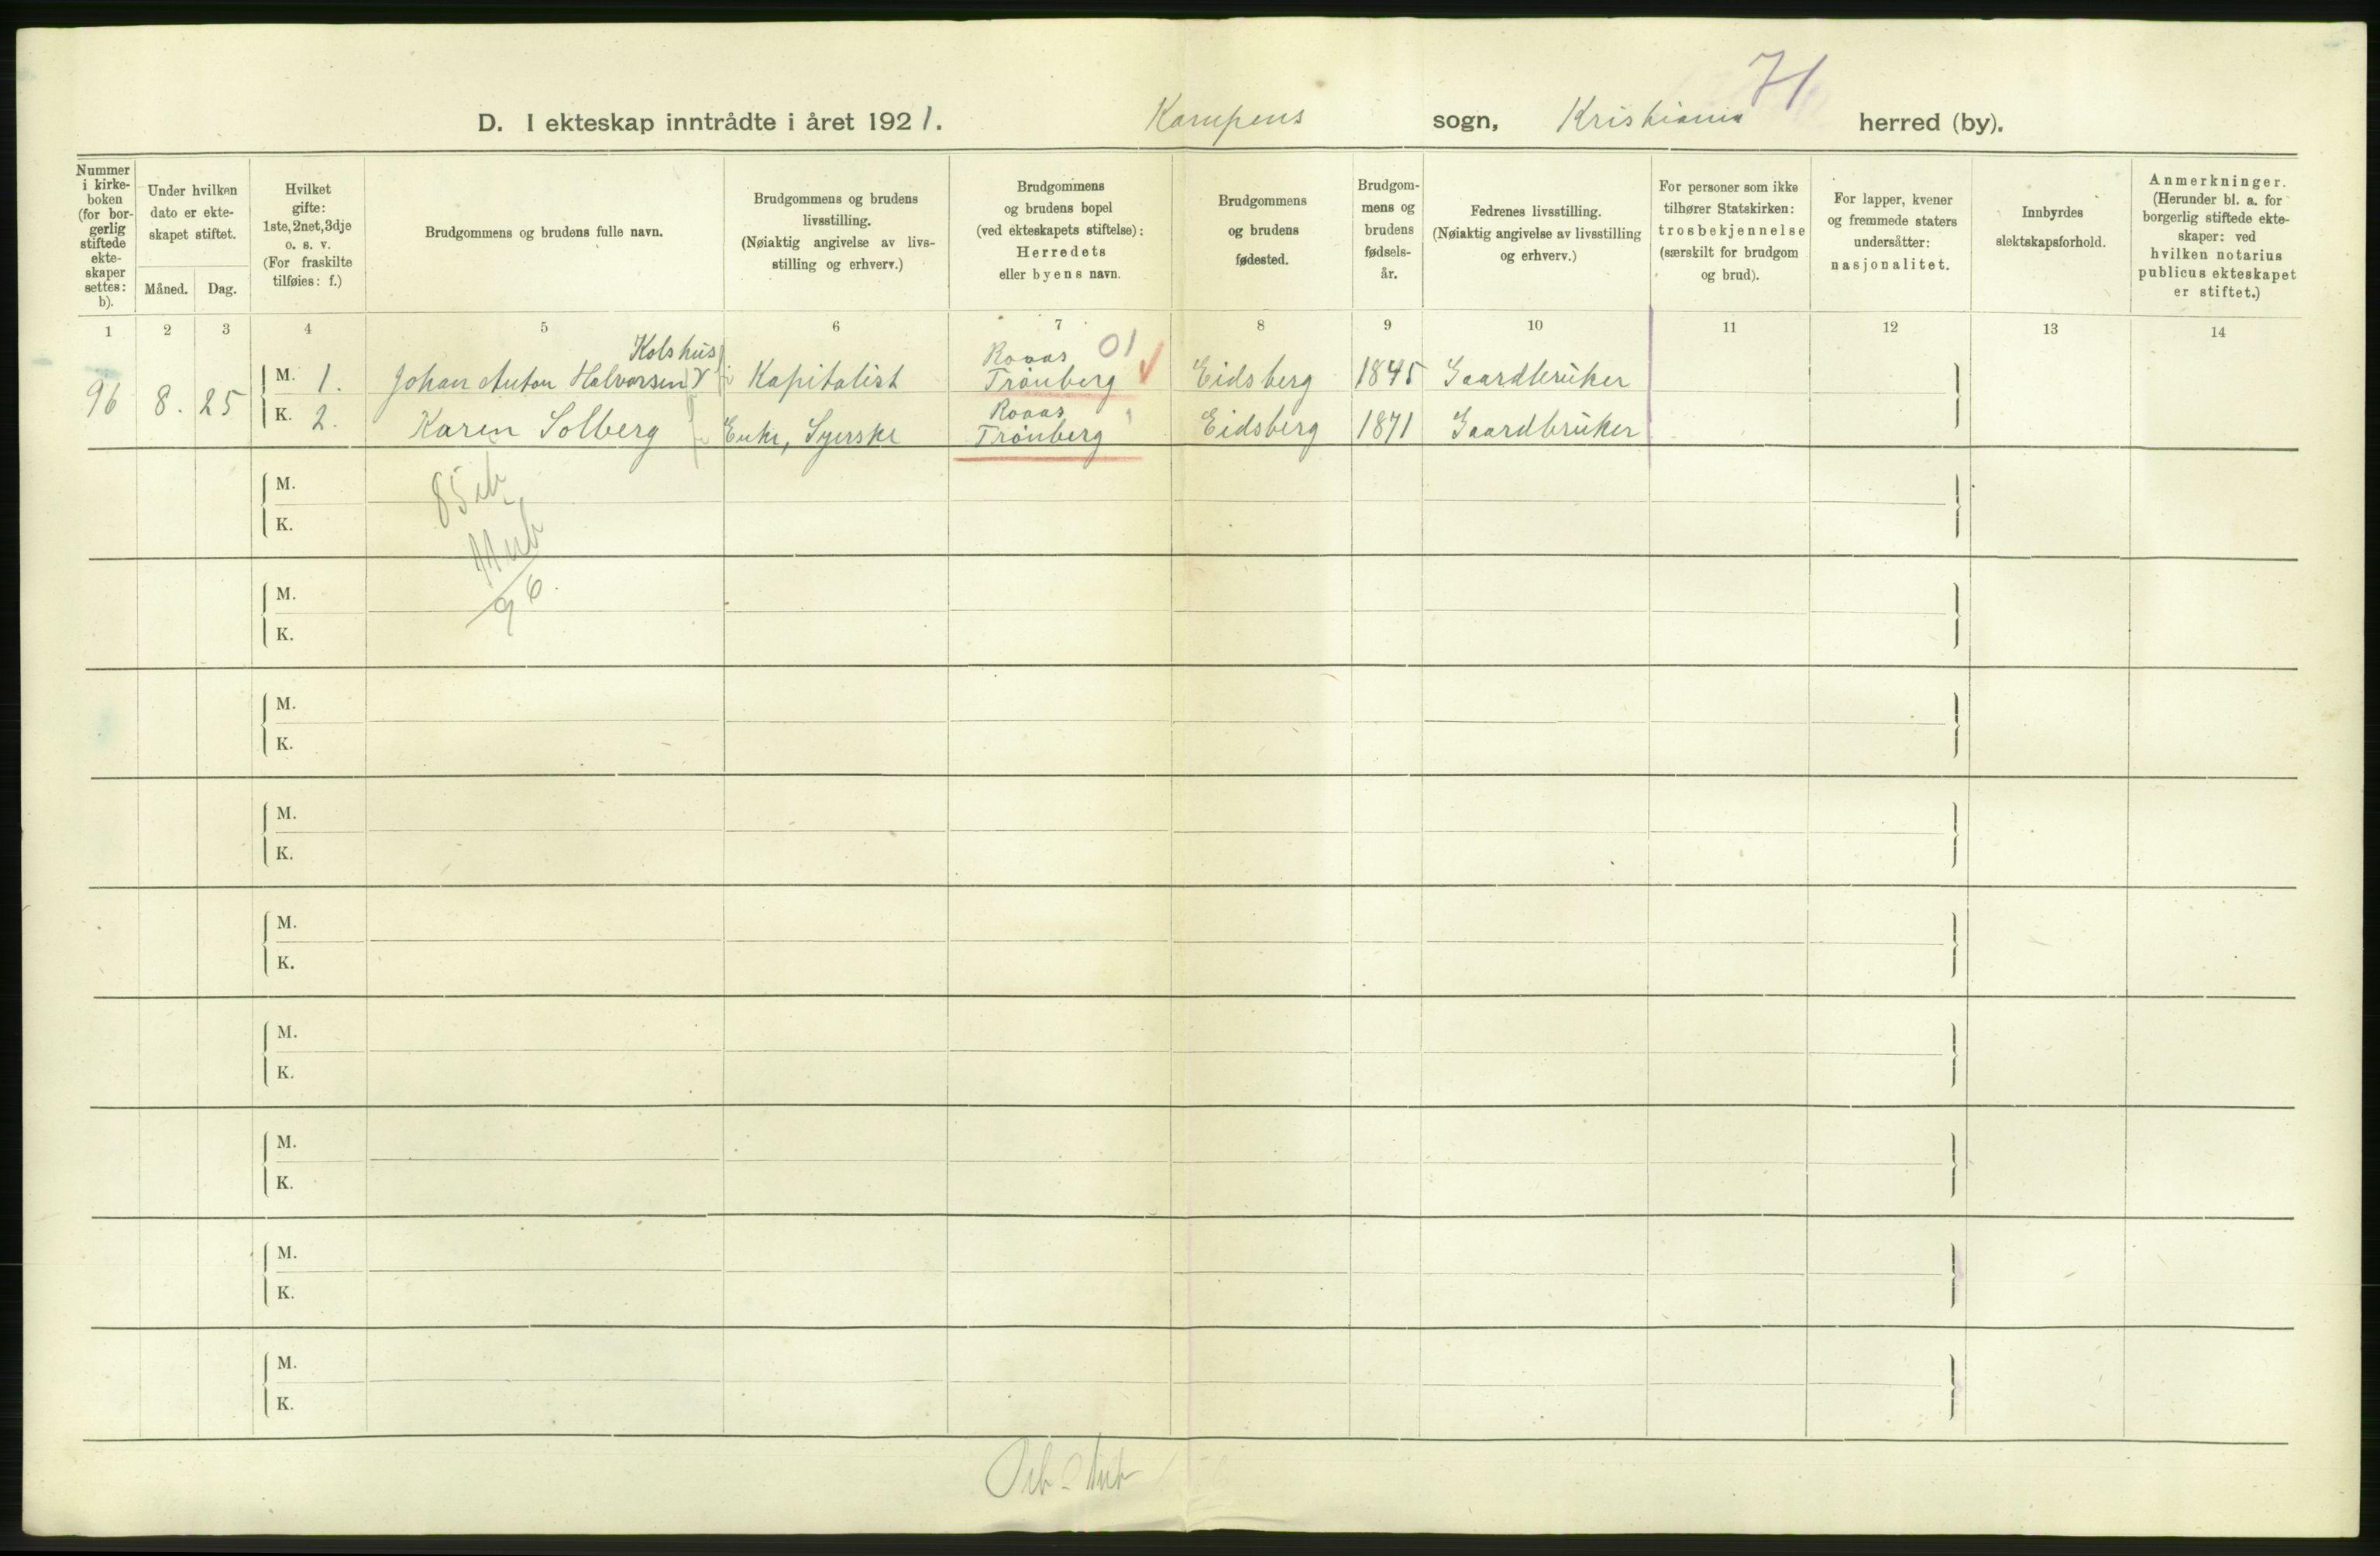 71
D. I ekteskap inntrådte i året 1921. Kampens sogn, Kristiania herred (by).
Nummer i kirke-boken (for bor-gerlig stiftede ekte-skaper settes: b).
Under hvilken dato er ekte-skapet stiftet.
Måned. Dag.
Hvilket gifte: 1ste, 2net, 3dje o. s. v. (For fraskilte tilføies: f.)
Brudgommens og brudens fulle navn.
Brudgommens og brudens livsstilling. (Nøiaktig angivelse av livs-stilling og erhverv.)
Brudgommens og brudens bopel (ved ekteskapets stiftelse): Herredets eller byens navn.
Brudgommens og brudens fødested.
Brudgom-mens og brudens fødsels-år.
Fedrenes livsstilling. (Nøiaktig angivelse av livsstilling og erhverv.)
For personer som ikke tilhører Statskirken: trosbekjennelse (særskilt for brudgom og brud).
For lapper, kvener og fremmede staters undersåtter: nasjonalitet.
Innbyrdes slektskapsforhold.
Anmerkninger. (Herunder bl. a. for borgerlig stiftede ekte-skaper: ved hvilken notarius publicus ekteskapet er stiftet.)
1 2 3 4 5 6 7 8 9 10 11 12 13 14
Kolshus Roaas 01
96 8. 25 M. 1. Johan Anton Halvorsen Kapitalist Trønberg Eidsberg 1845 Gaardbruker
Roaas
K. 2. Karen Solberg Enke, Syerske Trønberg Eidsberg 1871 Gaardbruker
M.
K.
M.
96
K.
M.
K.
M.
K.
M.
K.
M.
K.
M.
K.
M.
K.
M.
K.